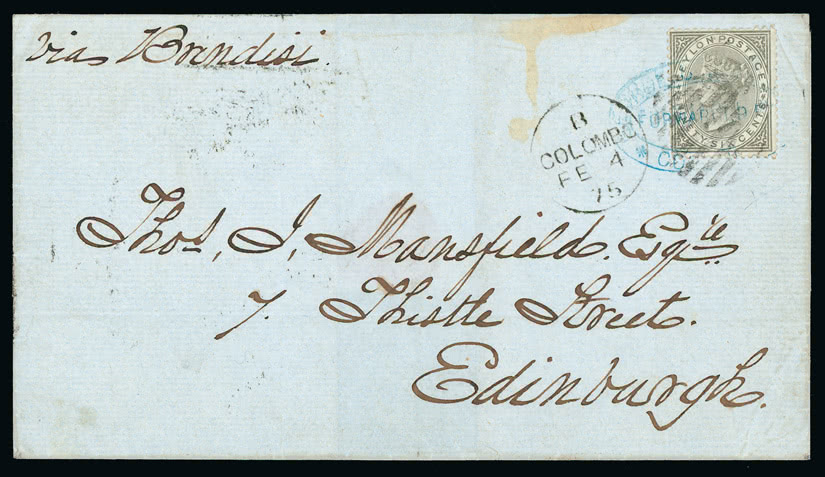 via Brindisi.
CEYLON POSTAGE
SIX CENTS
FORWARDED
B
COLOMBO
FE 4
75
Thos. J. Mansfield. Esqre
7. Thistle Street.
Edinburgh.